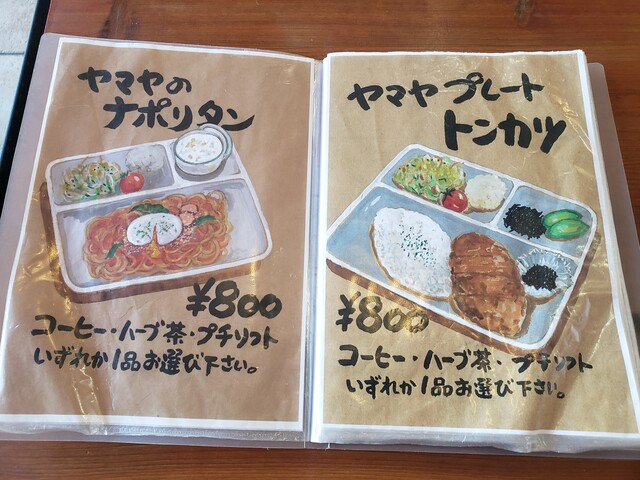 ヤマヤの
ナポリタン
¥800
コーヒー・ハーブ茶・プチソフト
いずれか1品お選び下さい。
ヤマヤプレート
トンカツ
¥800
コーヒー・ハーブ茶・プチソフト
いずれか1品お選び下さい。